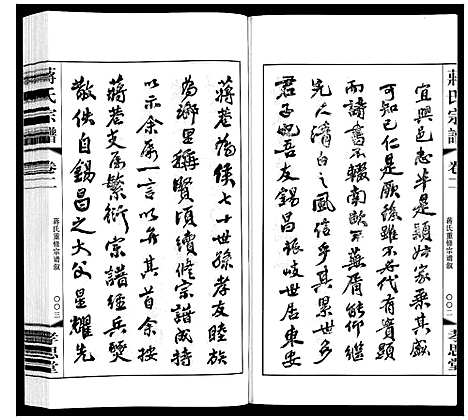 蔣氏宗譜
卷二
蔣氏重修宗谱叙
〇〇二
孝思堂
宜興邑志半是穎姓家乘其盛
可知已仁是厥後雖不代有實顯
而讀書不輟南畝蕪屑能仰繼
先人清白之風信乎其累世多
君子也吾友錫昌世居東安
蔣巷為侯七十世孫孝友睦族
為鄉里稱賢頃續修宗譜成持
以示余屬一言以弁其首余按
蔣巷支屬繁衍宗譜經兵燹
散佚自錫昌之大父星耀先
蔣氏宗譜
卷二
蔣氏重修宗谱叙
〇〇三
孝思堂